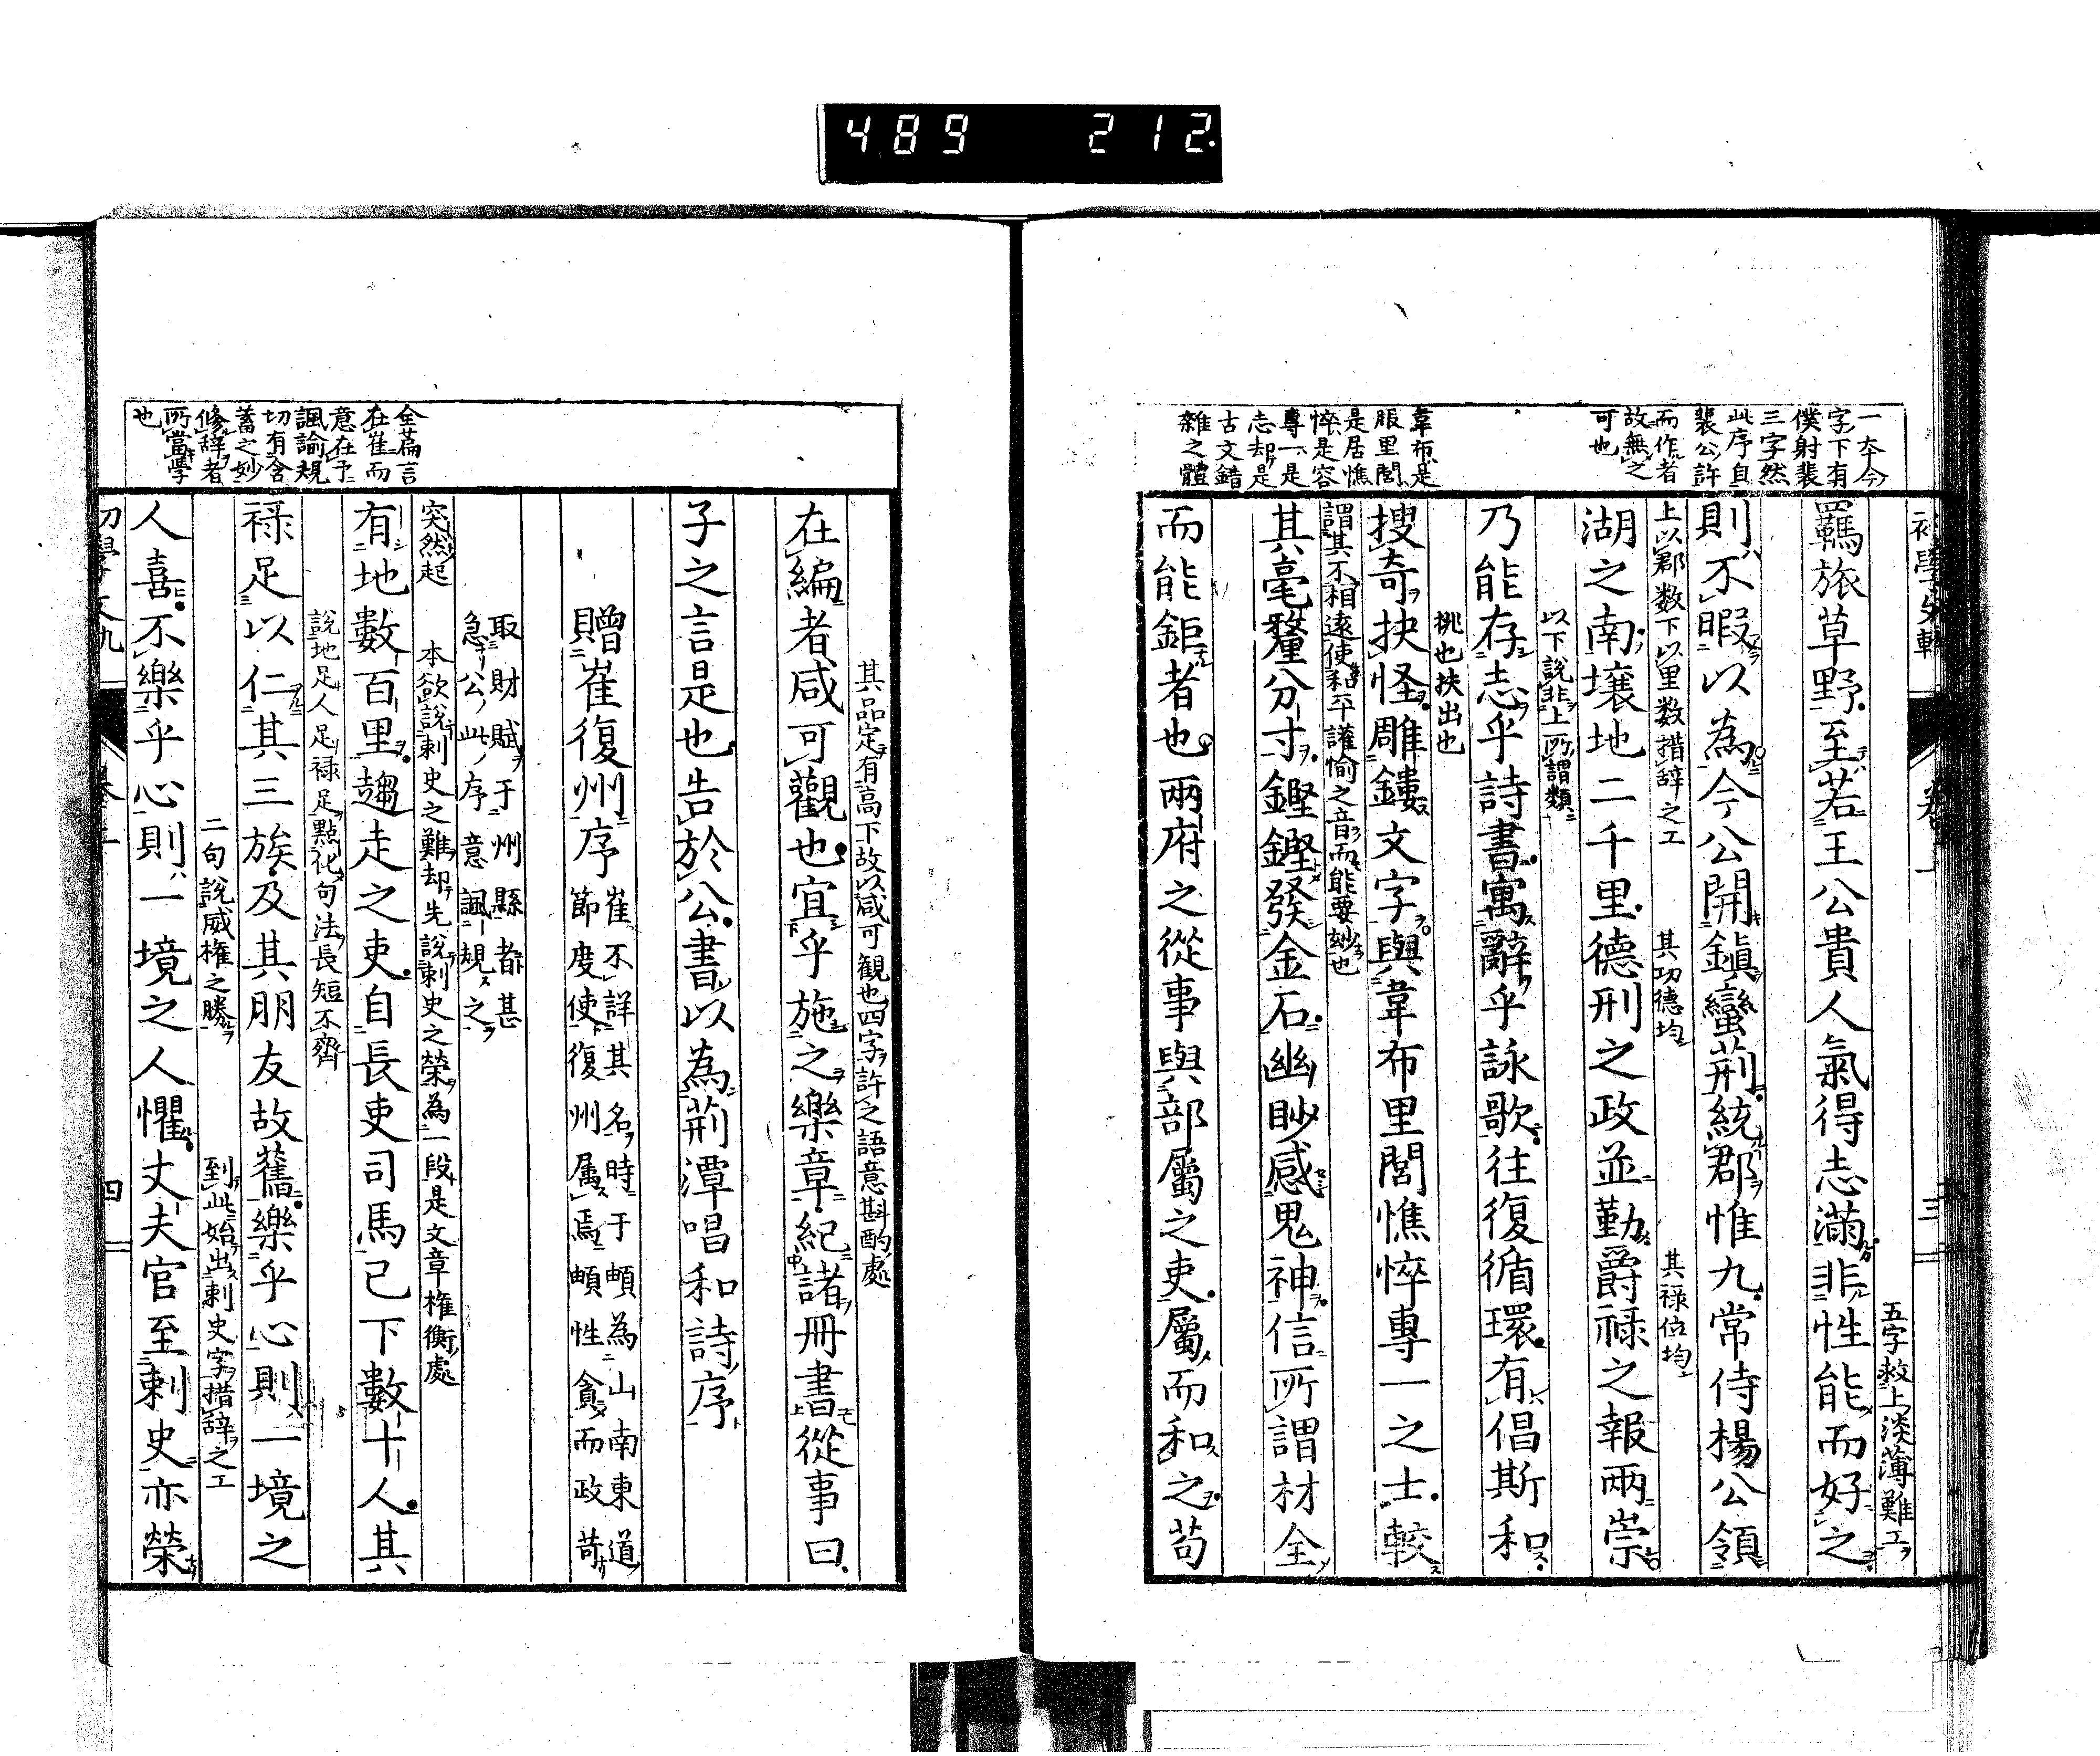 489 212.
一本今
字下有
僕射裴
三字然
此序自
裴公許
而作者
故無之
可也
韋布是
服里閭
是居憔
悴是容
專一是
志却是
古文錯
雜之體
五字救上淡薄難工
羈旅草野至若王公貴人氣得志滿非性能而好之
則不暇以為今公開鎭蠻荊統郡惟九常侍楊公領
上以郡数下以里数措辞之工 其功德均 其禄位均
湖之南壤地二千里德刑之政並勤爵祿之報兩崇
以下說非上所謂類
乃能存志乎詩書寓辭乎詠歌往復循環有倡斯和
挑也抉出也
搜奇抉怪雕鏤文字與韋布里閭憔悴專一之士較
謂其不相遠使和平讙愉之音而能要妙也
其毫釐分寸鏗鏗發金石幽眇感鬼神信所謂材全
而能鉅者也兩府之從事與部屬之吏屬而和之苟
全篇言
在崔而
意在予
諷諭規
切有含
蓄之妙
修辞者
所當學
也
其品定有高下故以咸可観也四字許之語意斟酌處
在編者咸可觀也宜乎施之樂章紀諸冊書從事曰
子之言是也告於公書以為荊潭唱和詩序
贈崔復州序
崔不詳其名時于頔為山南東道
節度使復州属焉頔性貪而政苛
取財賦于州縣者甚
急公此序意諷規之
突然起 本欲說刺史之難却先說刺史之榮為一段是文章権衡處
有地數百里趨走之吏自長吏司馬已下數十人其
說地足人足禄足點化句法長短不齊
祿足以仁其三族及其朋友故舊樂乎心則一境之
二句說威権之勝 到此始出刺史字措辞之工
人喜不樂乎心則一境之人懼丈夫官至刺史亦榮
四